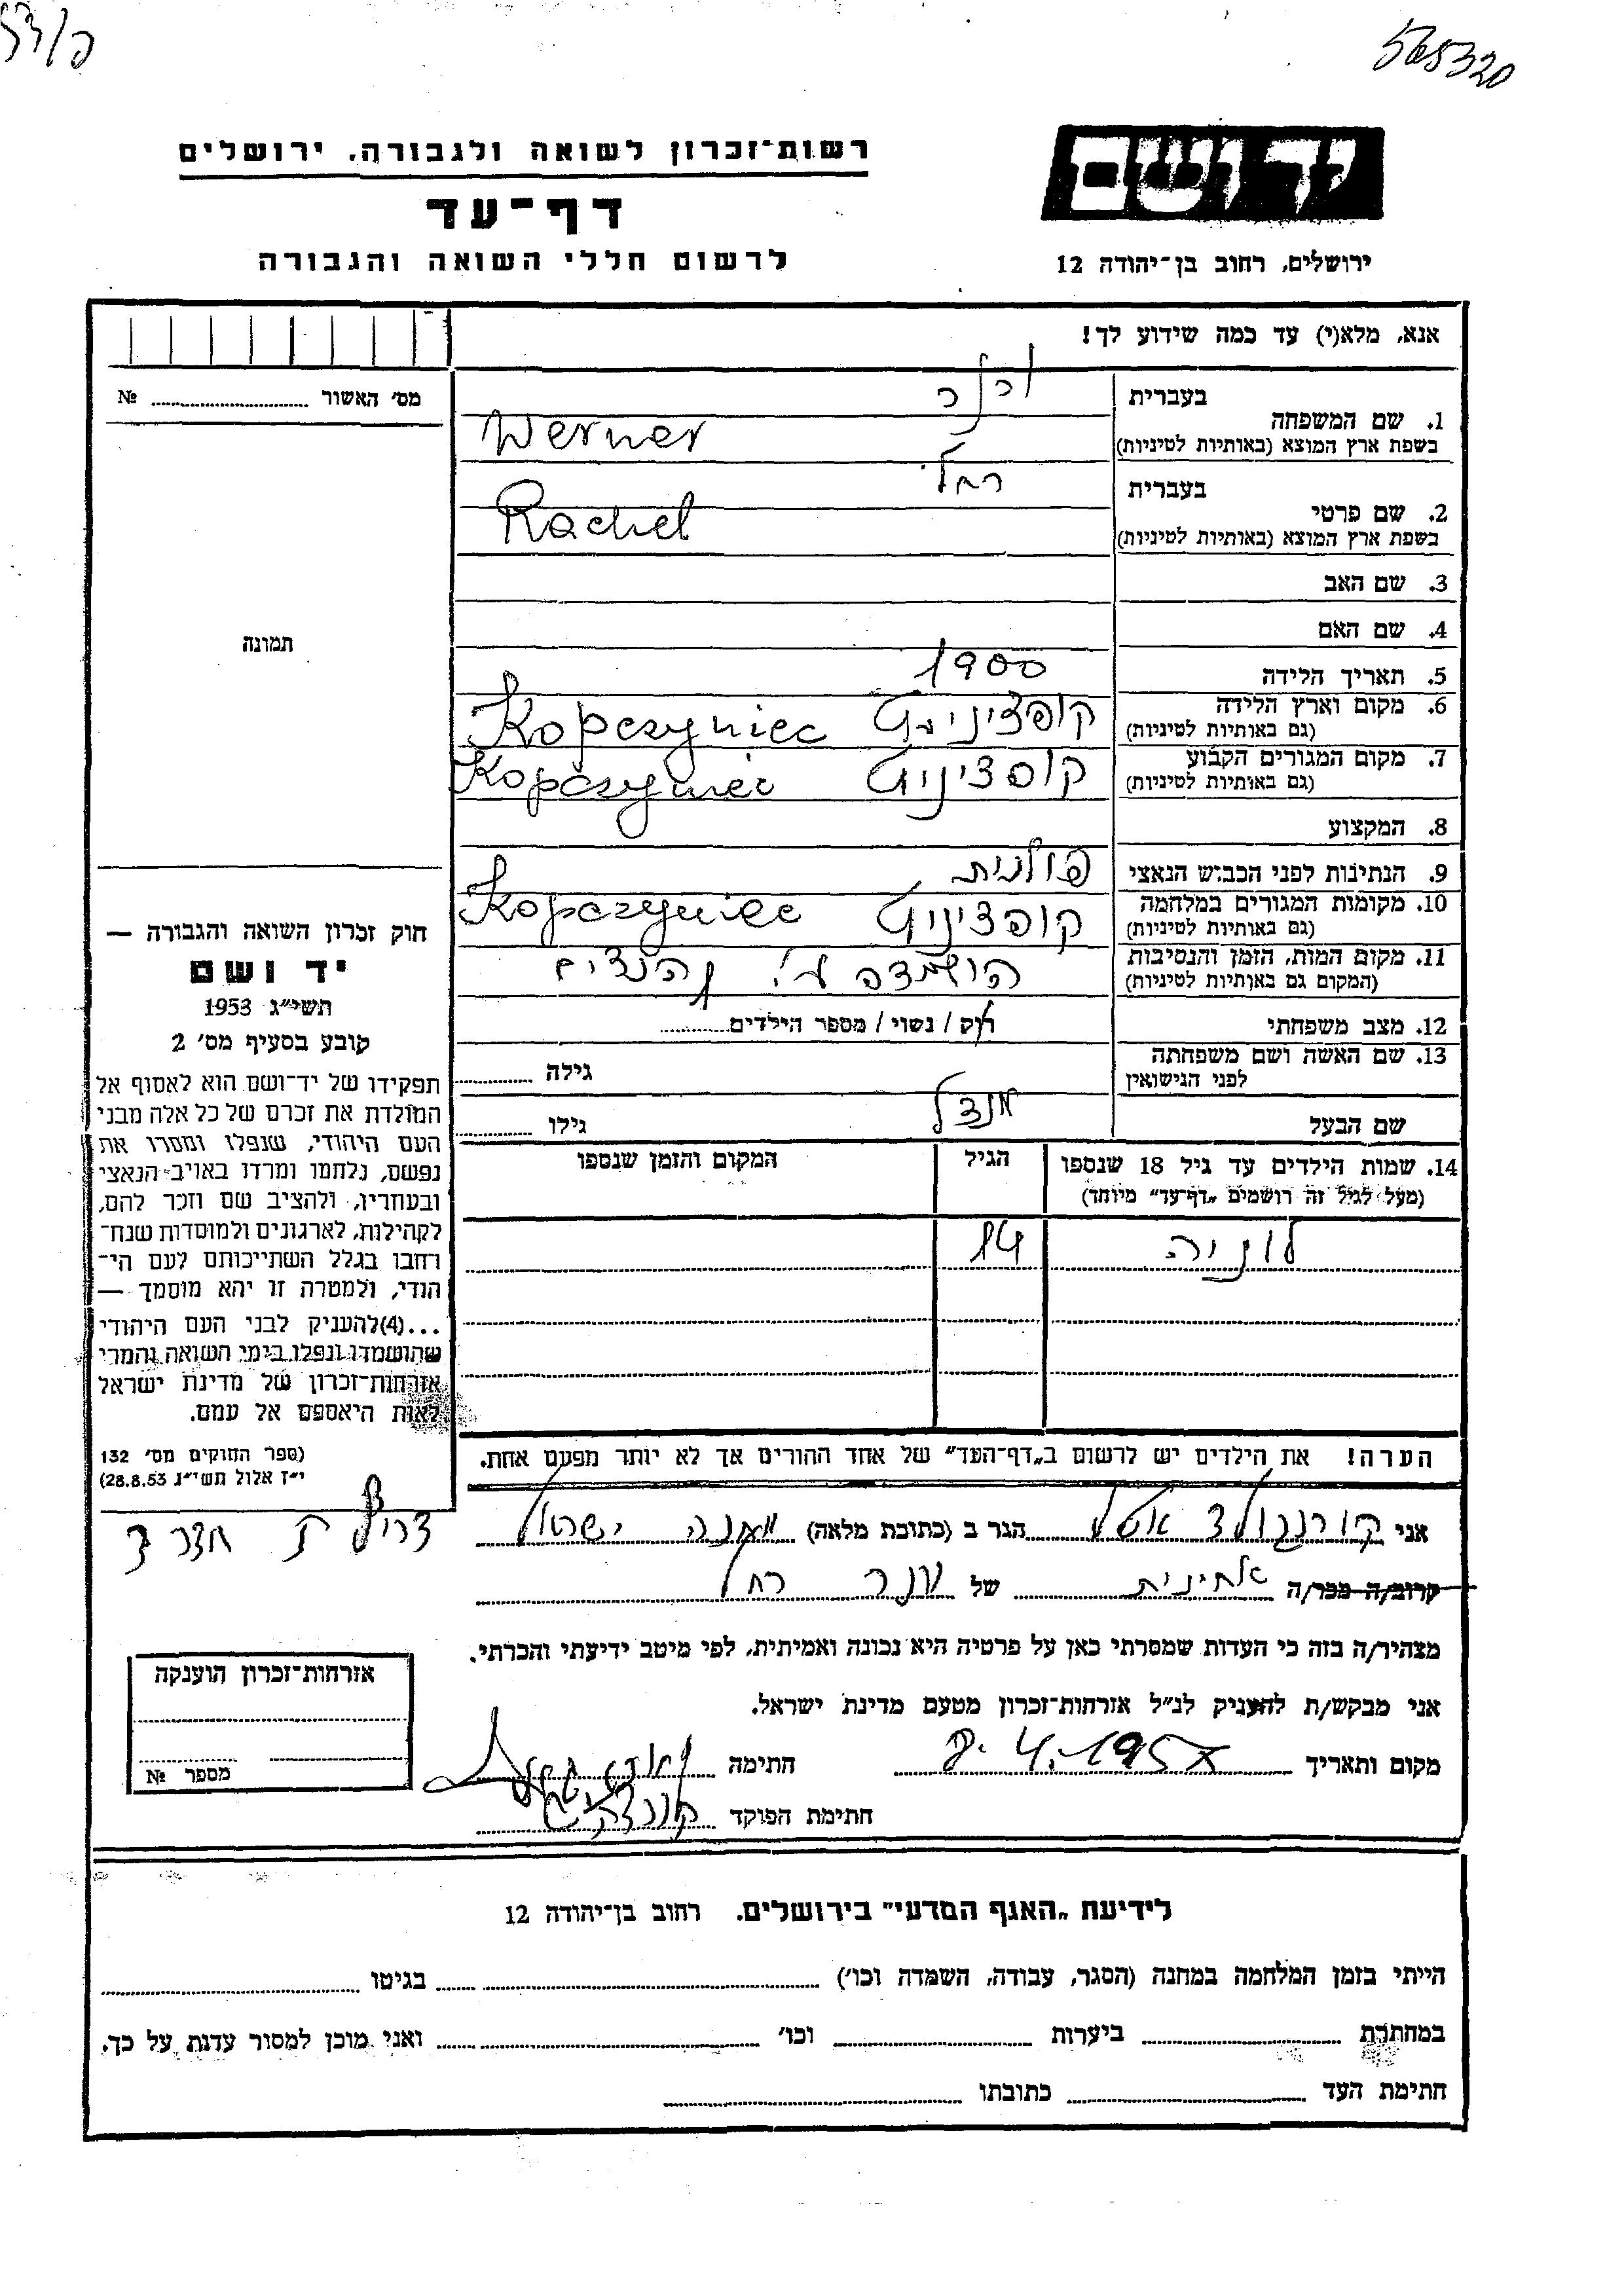 565320
יד ושם
ירושלים, רחוב בן־יהודה 12
רשות־זכרון לשואה ולגבורה, ירושלים
דף־עד
לרשום חללי השואה והגבורה
אנא, מלא(י) עד כמה שידוע לך!
מס׳ האשור № 
תמונה
1. שם המשפחה
בעברית ורנר
בשפת ארץ המוצא (באותיות לטיניות) Werner
2. שם פרטי
בעברית רחל
בשפת ארץ המוצא (באותיות לטיניות) Rachel
3. שם האב
4. שם האם
5. תאריך הלידה 1900
6. מקום וארץ הלידה
(גם באותיות לטיניות) Kopczyniec
7. מקום המגורים הקבוע
(גם באותיות לטיניות) קופציניץ Kopczyniec
8. המקצוע
9. הנתינות לפני הכבוש הנאצי פולנית
10. מקומות המגורים במלחמה
(גם באותיות לטיניות) קופציניץ Kopczyniec
11. מקום המות, הזמן והנסיבות
(המקום גם באותיות לטיניות) הושמדה ע״י הנצים
12. מצב משפחתי רוק / נשוי / מספר הילדים
13. שם האשה ושם משפחתה
לפני הנישואין גילה
שם הבעל מנדל גילו
14. שמות הילדים עד גיל 18 שנספו
(מעל לגיל זה רושמים „דף־עד״ מיוחד)
הגיל
המקום והזמן שנספו
לוניה 14
הערה! את הילדים יש לרשום ב„דף־העד״ של אחד ההורים אך לא יותר מפעם אחת.
חוק זכרון השואה והגבורה —
יד ושם
תשי״ג 1953
קובע בסעיף מס׳ 2
תפקידו של יד־ושם הוא לאסוף אל
המולדת את זכרם של כל אלה מבני
העם היהודי, שנפלו ומסרו את
נפשם, נלחמו ומרדו באויב הנאצי
ובעוזריו, ולהציב שם וזכר להם,
לקהילות, לארגונים ולמוסדות שנח־
רבו בגלל השתייכותם לעם הי־
הודי, ולמטרה זו יהא מוסמך —
...(4) להעניק לבני העם היהודי
שהושמדו ונפלו בימי השואה והמרי
אזרחות־זכרון של מדינת ישראל
לאות היאספם אל עמם.
(ספר החוקים מס׳ 132
י״ז אלול תשי״ג 28.8.53)
אני קורנגולד אטל הגר ב (כתובת מלאה) ישראל
צריף חדר
קרוב/ה מכר/ה אחינית של ורנר רחל
מצהיר/ה בזה כי העדות שמסרתי כאן על פרטיה היא נכונה ואמיתית, לפי מיטב ידיעתי והכרתי.
אני מבקש/ת להעניק לנ״ל אזרחות־זכרון מטעם מדינת ישראל.
מקום ותאריך 8.4.1957 חתימה
חתימת הפוקד
אזרחות־זכרון הוענקה
מספר №
לידיעת „האגף המדעי״ בירושלים. רחוב בן־יהודה 12
הייתי בזמן המלחמה במחנה (הסגר, עבודה, השמדה וכו׳) בגיטו
במחתרת ביערות וכו׳ ואני מוכן למסור עדות על כך.
חתימת העד כתובתו